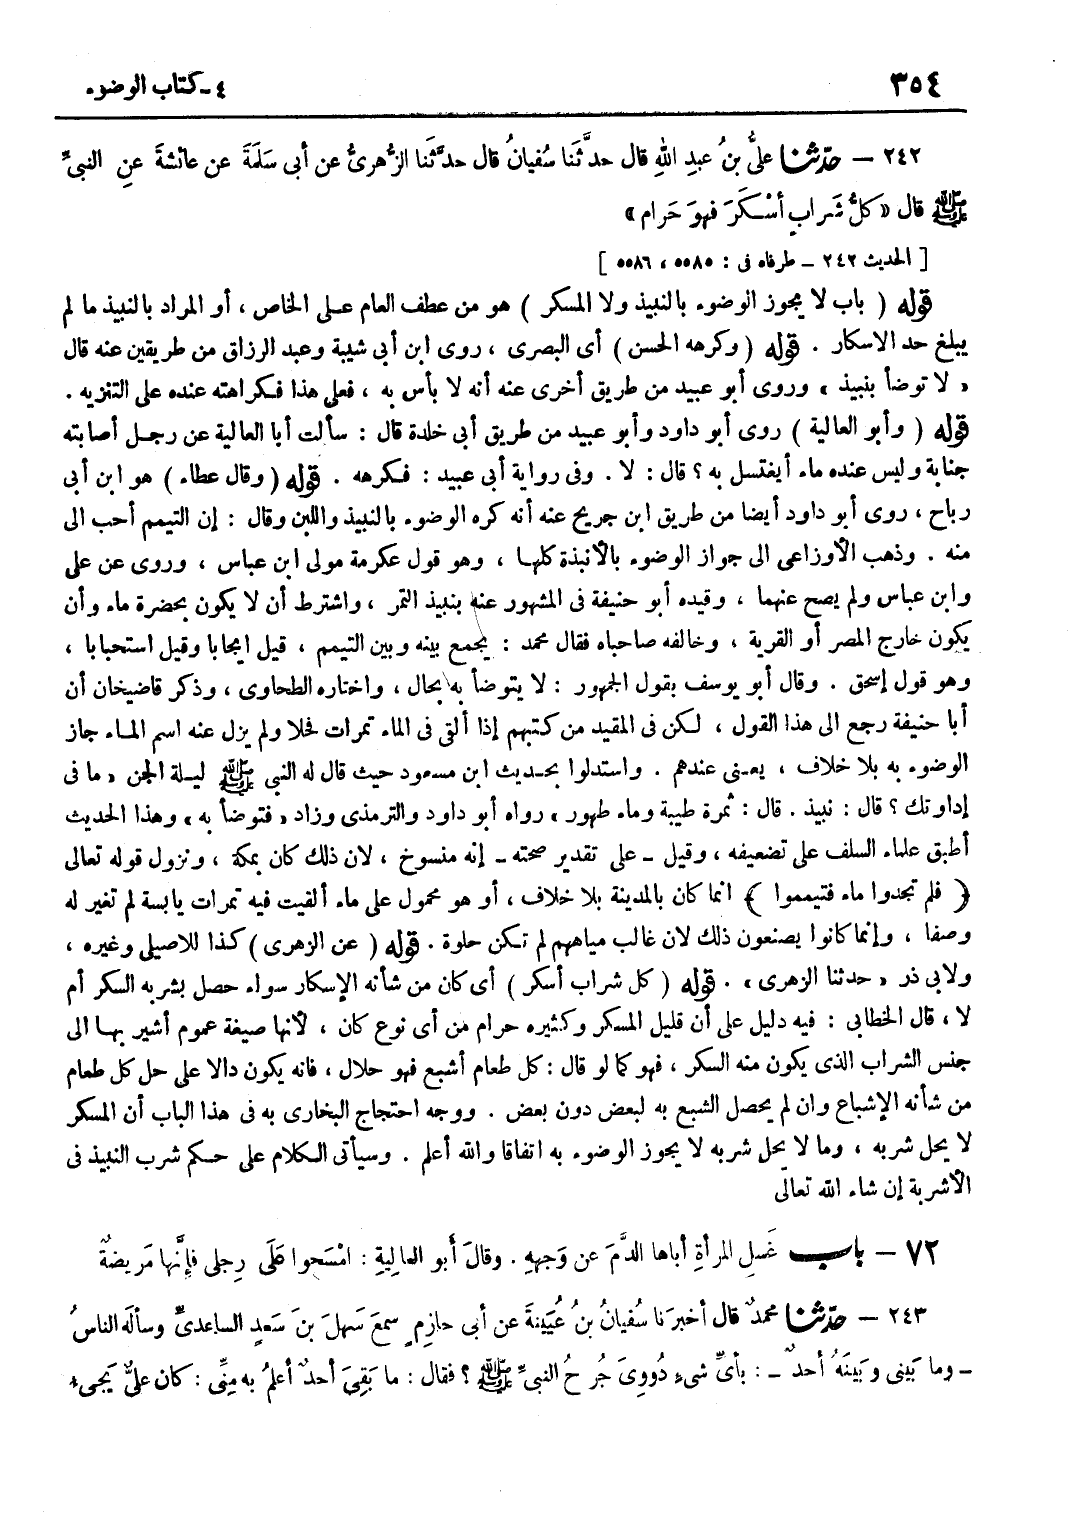 ٣٥٤
٤ ـ كتاب الوضوء
٢٤٢ – حدّثنا علىُّ بنُ عبدِ اللهِ قال حدَّثَنا سُفيانُ قال حدَّثَنا الزُّهرىُّ عن أبى سَلَمَةَ عن عائشةَ عنِ النبىِّ
ﷺ قال «كلُّ شَرابٍ أسْكَرَ فهوَ حَرام»
[ الحديث ٢٤٢ – طرفاه فى : ٥٥٨٥ ، ٥٥٨٦ ]
قوله ( باب لا يجوز الوضوء بالنبيذ ولا المسكر ) هو من عطف العام على الخاص ، أو المراد بالنبيذ ما لم
يبلغ حد الاسكار . قوله ( وكرهه الحسن ) أى البصرى ، روى ابن أبى شيبة وعبد الرزاق من طريقين عنه قال
« لا توضأ بنبيذ » وروى أبو عبيد من طريق أخرى عنه أنه لا بأس به ، فعلى هذا فكراهته عنده على التنزيه .
قوله ( وأبو العالية ) روى أبو داود وأبو عبيد من طريق أبى خلدة قال : سألت أبا العالية عن رجل أصابته
جنابة وليس عنده ماء أيغتسل به ؟ قال : لا . وفى رواية أبى عبيد : فكرهه . قوله ( وقال عطاء ) هو ابن أبى
رباح ، روى أبو داود أيضا من طريق ابن جريج عنه أنه كره الوضوء بالنبيذ واللبن وقال : إن التيمم أحب الى
منه . وذهب الأوزاعى الى جواز الوضوء بالأنبذة كلها ، وهو قول عكرمة مولى ابن عباس ، وروى عن على
وابن عباس ولم يصح عنهما ، وقيده أبو حنيفة فى المشهور عنه بنبيذ التمر ، واشترط أن لا يكون بحضرة ماء وأن
يكون خارج المصر أو القرية ، وخالفه صاحباه فقال محمد : يجمع بينه وبين التيمم ، قيل ايجابا وقيل استحبابا ،
وهو قول إسحق . وقال أبو يوسف بقول الجمهور : لا يتوضأ به بحال ، واختاره الطحاوى ، وذكر قاضيخان أن
أبا حنيفة رجع الى هذا القول ، لكن فى المقيد من كتبهم إذا ألقى فى الماء تمرات فحلا ولم يزل عنه اسم الماء جاز
الوضوء به بلا خلاف ، يعنى عندهم . واستدلوا بحديث ابن مسعود حيث قال له النبى ﷺ ليلة الجن « ما فى
إداوتك ؟ قال : نبيذ . قال : ثمرة طيبة وماء طهور » رواه أبو داود والترمذى وزاد « فتوضأ به » وهذا الحديث
أطبق علماء السلف على تضعيفه ، وقيل – على تقدير صحته – إنه منسوخ ، لان ذلك كان بمكة ، ونزول قوله تعالى
﴿ فلم تجدوا ماء فتيمموا ﴾ انما كان بالمدينة بلا خلاف ، أو هو محمول على ماء ألقيت فيه تمرات يابسة لم تغير له
وصفا ، وإنما كانوا يصنعون ذلك لان غالب مياههم لم تكن حلوة . قوله ( عن الزهرى ) كذا للاصيلى وغيره ،
ولابى ذر « حدثنا الزهرى » . قوله ( كل شراب أسكر ) أى كان من شأنه الإسكار سواء حصل بشربه السكر أم
لا ، قال الخطابى : فيه دليل على أن قليل المسكر وكثيره حرام من أى نوع كان ، لأنها صيغة عموم أشير بها الى
جنس الشراب الذى يكون منه السكر ، فهو كما لو قال : كل طعام أشبع فهو حلال ، فانه يكون دالا على حل كل طعام
من شأنه الإشباع وان لم يحصل الشبع به لبعض دون بعض . ووجه احتجاج البخارى به فى هذا الباب أن المسكر
لا يحل شربه ، وما لا يحل شربه لا يجوز الوضوء به اتفاقا والله أعلم . وسيأتى الكلام على حكم شرب النبيذ فى
الأشربة إن شاء الله تعالى
٧٢ – باب غَسلِ المرأةِ أباها الدَّمَ عن وَجهِهِ . وقالَ أبو العاليةِ : امْسَحوا عَلَى رِجلى فإنَّها مَريضةٌ
٢٤٣ – حدّثنا محمدٌ قال أخبرَنا سُفيانُ بنُ عُيَينةَ عن أبى حازِمٍ سمعَ سَهلَ بنَ سَعدٍ الساعدىَّ وسألَه الناسُ
– وما بَينى وبَينَهُ أحدٌ – : بأىِّ شىءٍ دُووِىَ جُرحُ النبىِّ ﷺ ؟ فقال : ما بَقِىَ أحدٌ أعلمُ به مِنِّى : كان علىٌّ يَجىء